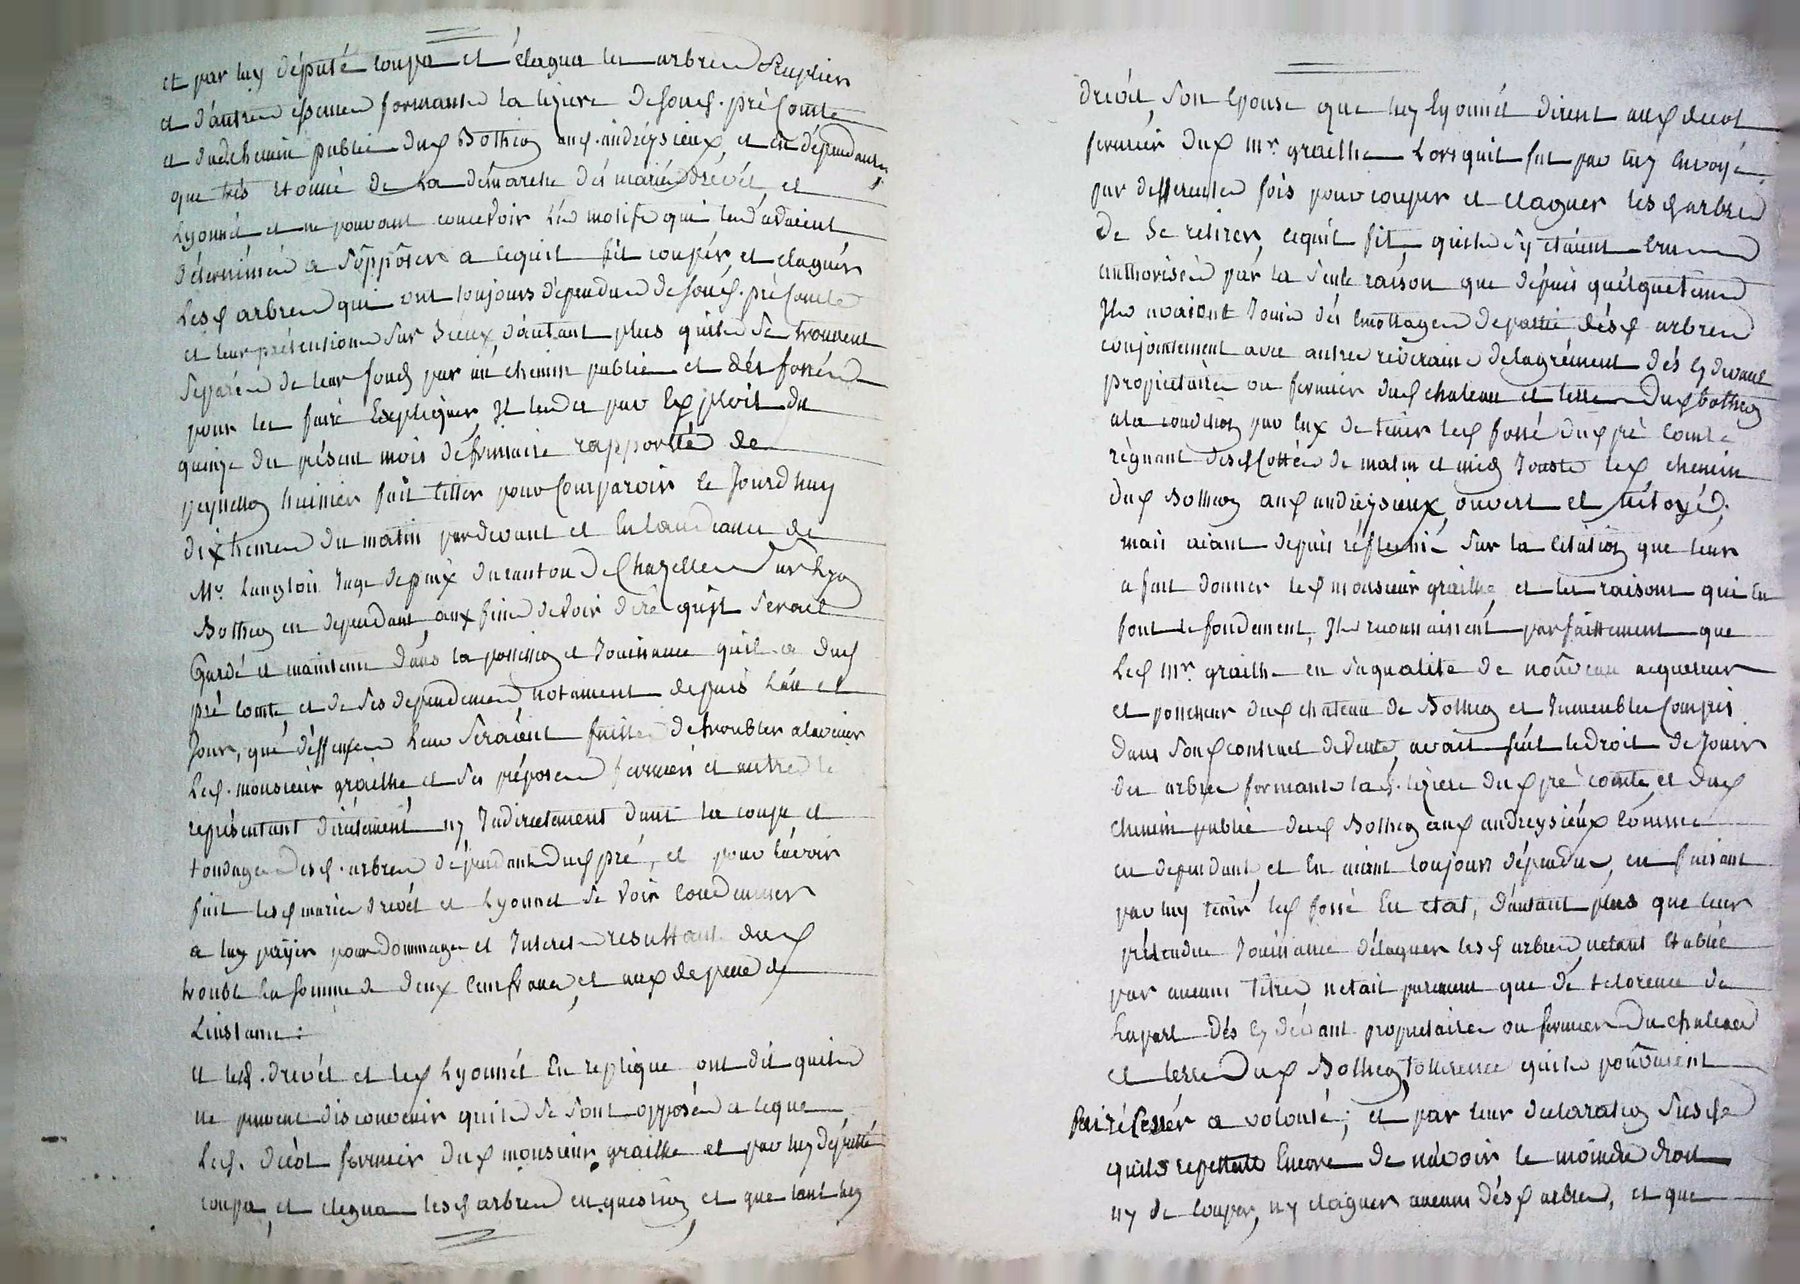 et par luy député coupa et élagua les arbres Peuplier
et d'autres essences formants la liziere desous.d pré Comte
et dudchemin public dud Bothéon aud. andrézieux, et en dépendants,
que très étonné de la démarche dés mariés drévét et
Lyonnét et ne pouvant concevoir Les motifs qui les avaient
déterminés a s'oppôser a cequil fit coupér et élaguér
Lesd arbres qui ont toujours dépendus desond. pré Comte
et leur prétentions sur iceux d'autant plus quils se trouvent
séparés de leur fonds par un chemin public et dés fossés
pour les faire Expliquer, Il les a par Exploit du
quinze du présent mois de frimaire rapporté de
peyneton huissier fait citter pour Comparoir ce Jourdhuy
dix heures du matin pardevant et En laudiance de
Mr. Langlois Juge depaix ducanton de Chazelles sur Lyon
Bothéon en dependant, aux fins devoir diré quil Serait
Gardé et maintenu dans la possession et Jouissance quil a dud
pré Comte et de ses dependences, notament depuis L'an et
Jour, que déffenses Leur Seraient faittes detroubler alavenir
Led. monsieur graithe et ses préposés fermiers et autres le
représentant directement ny Indirectement dans la coupe et
tondage desd. arbres dépendant dud pré, et pour L'avoir
fait lesd mariés drevét et Lyonnet se Voir Condamner
a luy payer pour dommages et Interets resultants dud
trouble La somme de deux Cent francs, et aux depens de
Linstance :
et lesd. drevét et lesd Lyonnét En replique ont dit quils
ne peuvent disconvenir quils se sont opposés aceque
Led. décôt fermier dud monsieur graithe et par luy députté
coupa, et elagua lesd arbres en question, et que tant luy
drevét, son Epouse que luy Lyonnét dirent aud decot
fermier dud mr. graithe Lorsquil fut par luy Envoyé
par differentes fois pour couper et elaguer lesd arbres
de Se retirer, cequil fit, quils sy étaient crus
authorisés par la Seule raison que depuis quélque tems
Ils avaient Jouis dés Emottages de partie désd arbres
conjointement avec autres riverains delagrément dés Cydevant
propriétaires ou fermier dud chateau et terre Dud bothéon
ala condition par Eux de tenir Led fossé dud pré Comte
règnant desd Cottés de matin et midy Jouste led chemin
dud Bothéon aud andrézieux, ouvert et nétoyé;
mais aiant depuis réflechi Sur la Citation que leur
a fait donner led monsieur graithe et les raisons qui En
font le fondement, Ils reconnaissent parfaittement que
Led mr graithe en saqualité de nouveau acquereur
et possesseur dud chateau de Bothéon et Immeubles Compris
dans sond contract devente, avait seul ledroit de Jouir
des arbres formants lad. liziere dud pré comte et dud
chemin public dud Bothéon aud andrezieux Comme
en dependant et En aiant toujours dépendus, en faisant
par luy tenir led fossé En etat, d'autant plus que leur
prétendue Jouissance d'élaguer lesd arbres, netant Etablie
par aucuns titres netait purement que de tolorence de
Lapart dés Cydevant propriétaires ou fermier Du chateau
et terre Dud Bothéon, tollerence quils pouvaient
fairé Cessér a volonté; et par leur declaration susde
quils repettent Encore de n'avoir le moindre droit
ny de Couper, ny élaguer aucuns désd arbres, et que